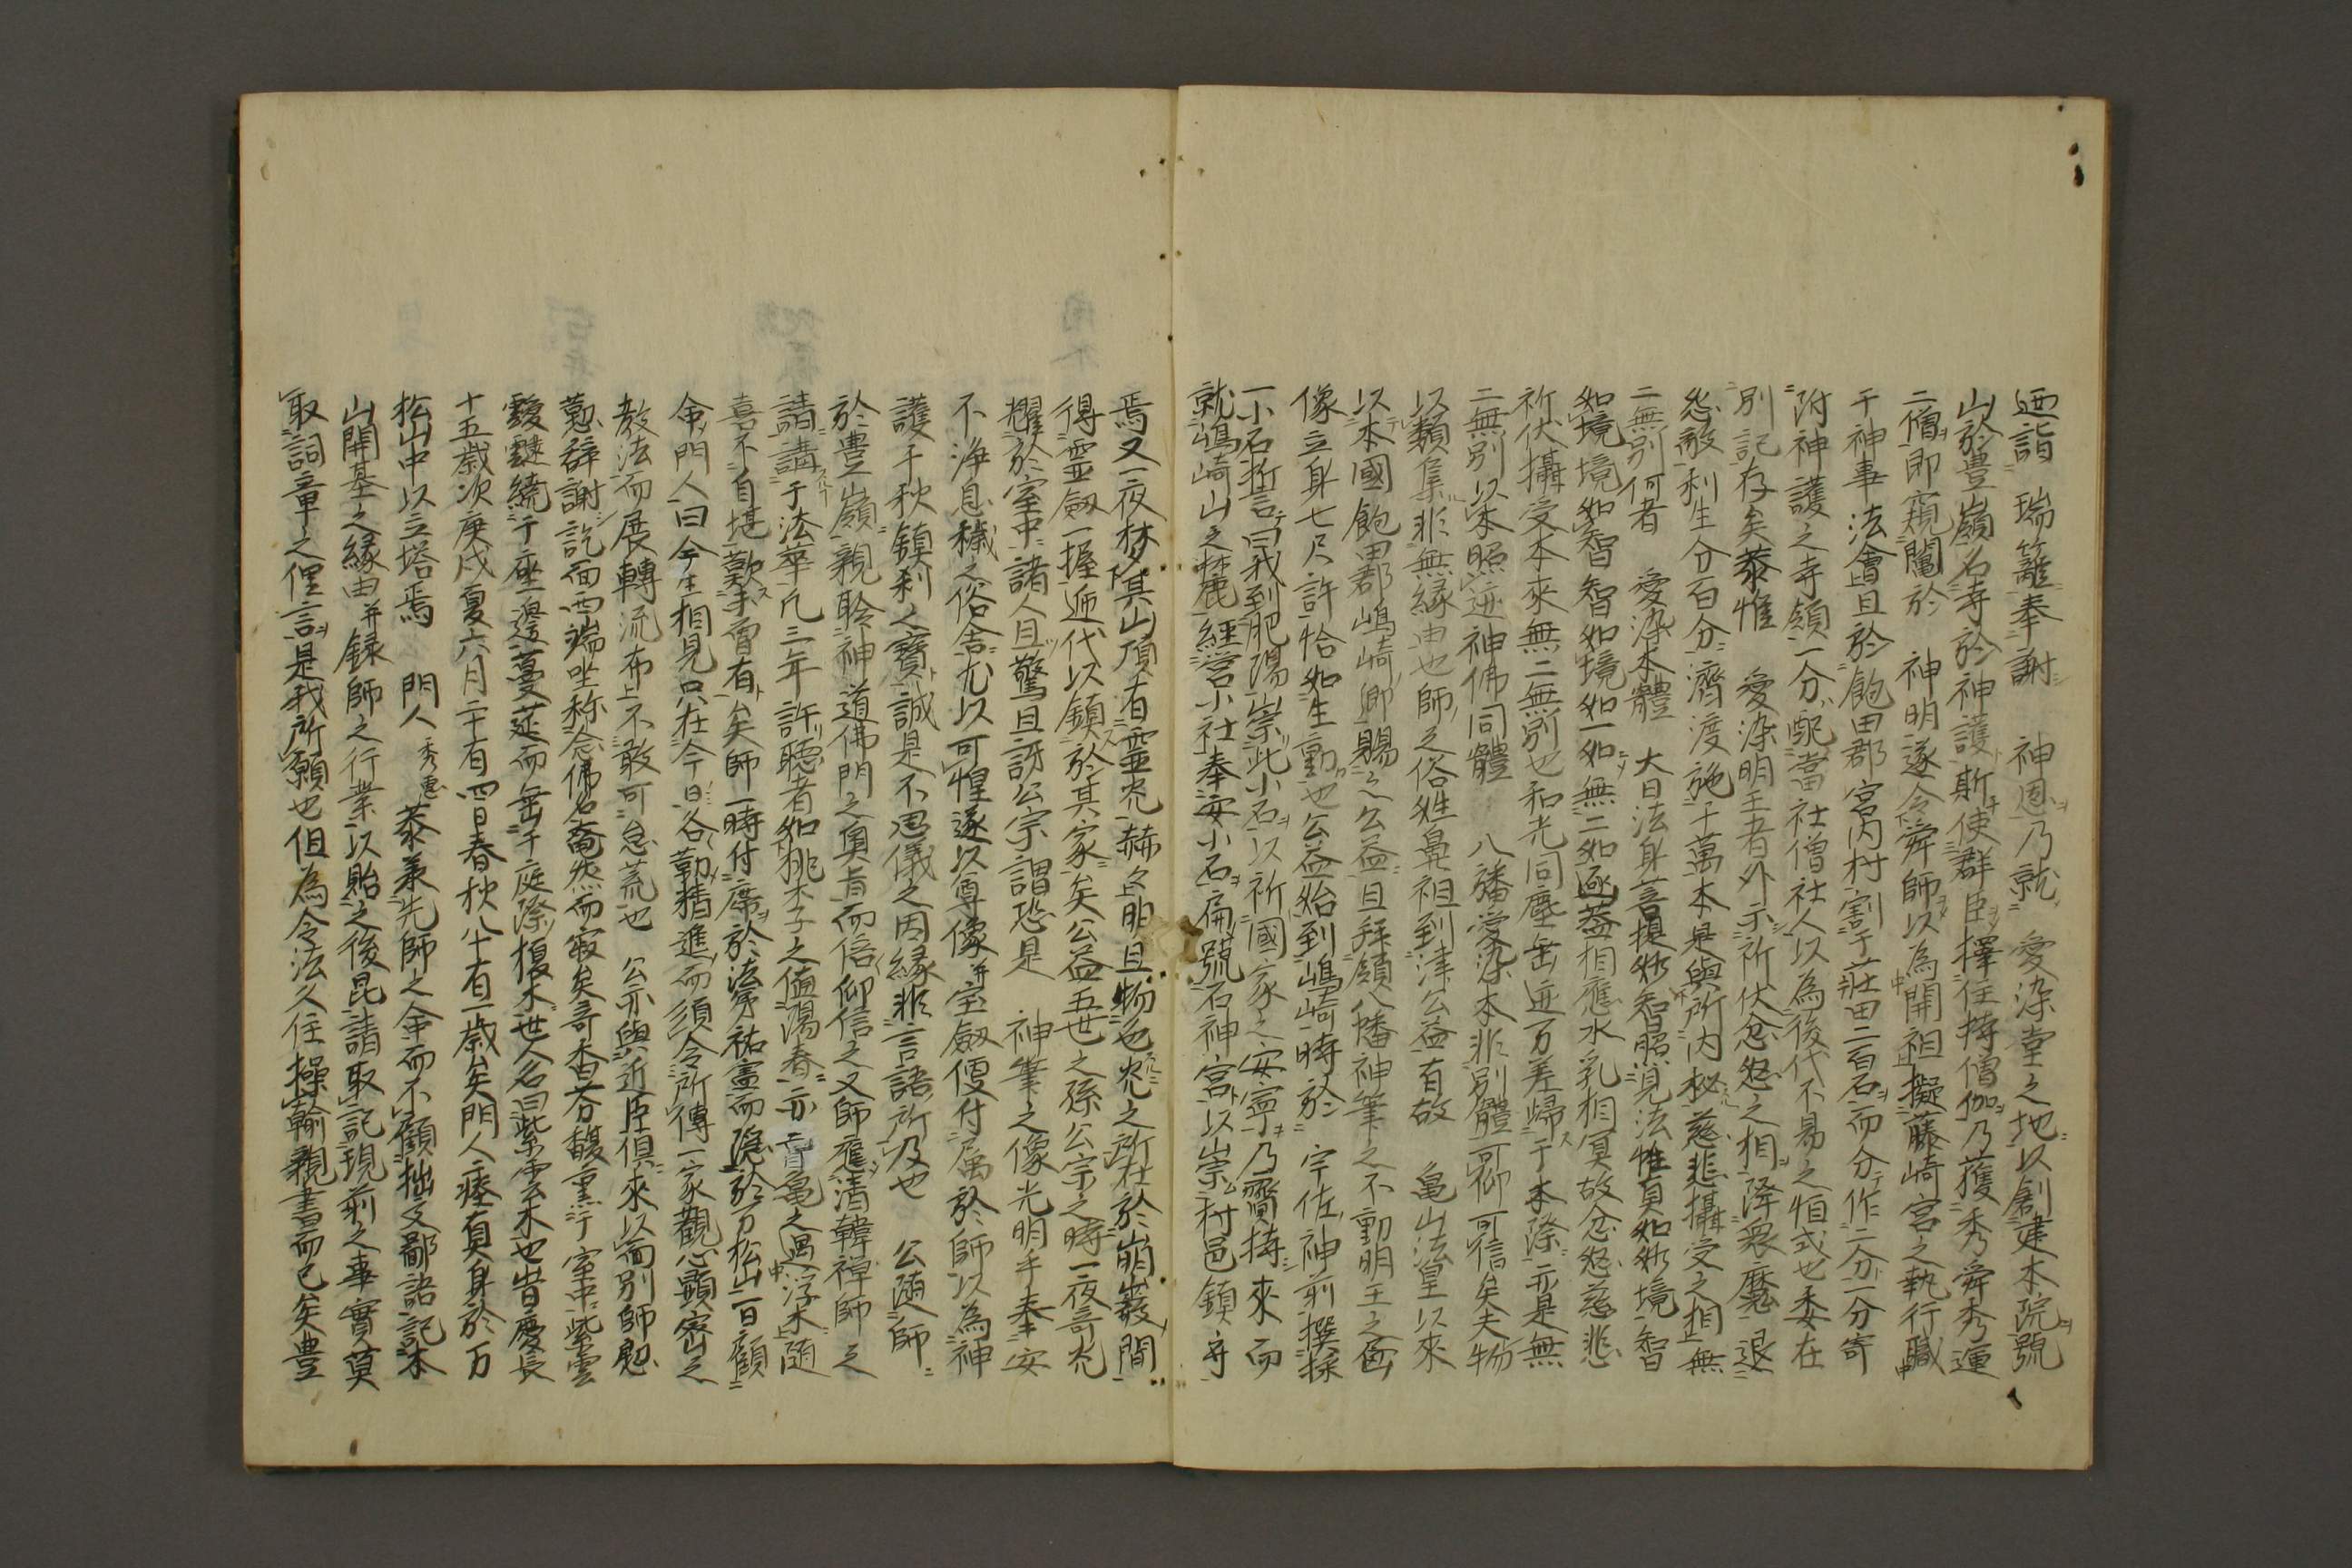 迺詣　瑞籬奉謝　神恩乃就　愛染堂之地以創建本院號
山於豊嶺名寺於神護斯使群臣擇住持僧伽乃獲秀舜秀運
二僧即窺闖於　神明遂令舜師以為開祖擬藤崎宮之執行職
于神事法會且於飽田郡宮内村割于莊田二百石而分作二分一分寄
附神護之寺領一分配當社僧社人以為後代不易之恒式也委在
別記存矣恭惟　愛染明王者外示所伏忿怒之相降衆魔退
怨敵利生分百分濟渡施千萬本是與所内秘慈悲攝受之相無
二無別何者　愛染本體　大日法身菩提妙智照見法性真如妙境智
如境境如智智如境如一如無二如函蓋相應水乳相冥故忿怒慈悲
祈伏攝受本來無二無別也和光同塵垂迹万差歸于本際亦是無
二無別以本照迹神佛同體　八旛愛染本非別體可仰可信矣夫物
以類集非無縁由也師之俗姓鼻祖到津公益有故　亀山法皇以來
以本國飽田郡嶋崎郷賜之公益且拜領八幡神筆之不動明王之画
像立身七尺許恰如生動也公益始到嶋崎時於　宇佐神前撰採
一小石誓言曰我到肥陽崇此小石以祈國家之安寧乃齎持來而
就嶋崎山之麓經営小社奉安小石扁號石神宮以崇村邑鎮守
焉又一夜梦其山頂有霊光赫々明旦物色光之所在於崩巌間
得霊劔一握迺代以鎮於其家矣公益五世之孫公宗之時一夜奇光
耀於室中諸人且驚且訝公宗謂恐是　神筆之像光明乎奉安
不浄息穢之俗舎尤以可惶遂以尊像并宝劔便付属於師以為神
護千秋鎮刹之寶誠是不思儀之因縁非言語所及也　公随師
於豊嶺親聆神道佛門之奥旨而信仰信之又師應清韓禅師之
請講于法華凡三年許聴者如桃李之値陽春亦盲亀之遇浮木随
喜不自堪歎未曽有矣師一時付席於法弟祐憲而隠於万松山一日顧
命門人曰今生相見只在今日各勤精進而須令所傳一家觀心顯密之
教法而展轉流布上不敢可怠荒也　公亦與近臣倶來以面別師慰
懃辞謝訖面西端坐称念佛名奄然而寂矣奇香芬馥薫于室中紫雲
靉靆繞于座邊蔓莚而垂于庭際榎木世人名曰紫雲木也旹慶長
十五歳次庚戌夏六月二十有四日春秋八十有一歳矣門人瘞真身於万
松山中以立塔焉　門人秀恵　恭承先師之命而不顧拙文鄙語記本
山開基之縁由并録師之行業以貽之後昆請取記現前之事實莫
取詞章之俚言是我所願也但為令法久住操觚親書而已矣豊